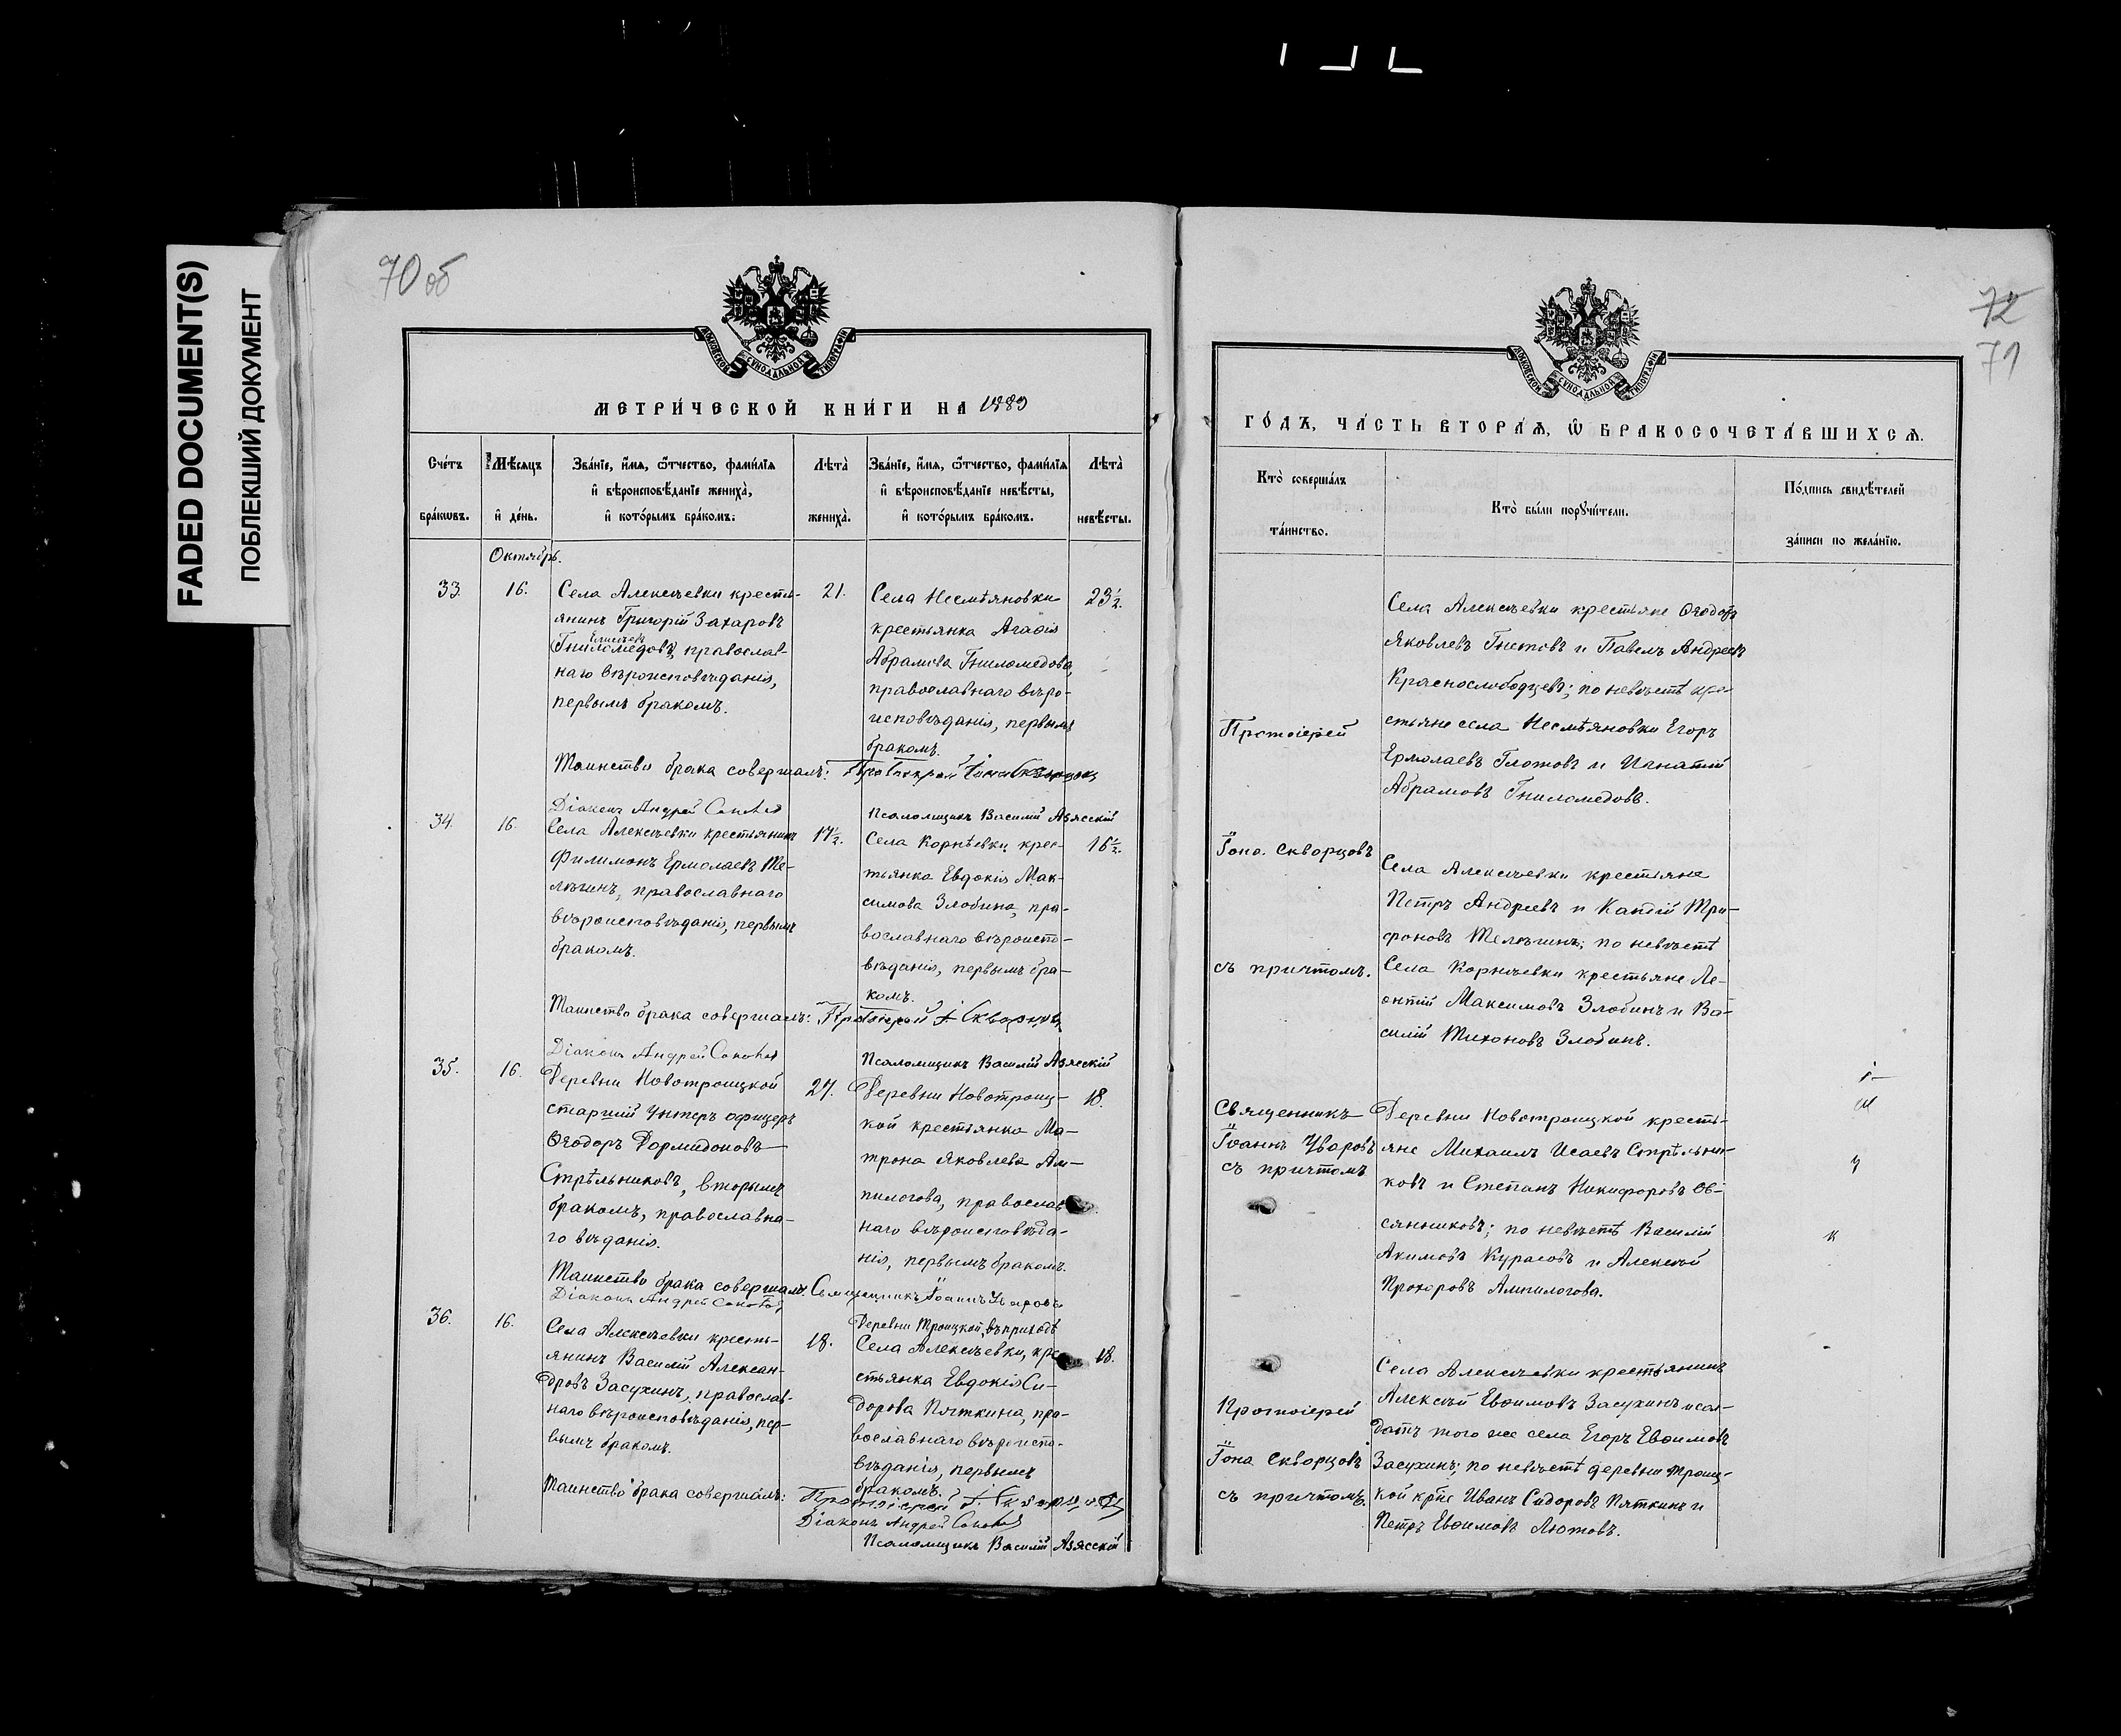 FADED DOCUMENT(S)
ПОБЛЕКШИЙ ДОКУМЕНТ
70 об
МОСКОВСКОЙ СУНОДАЛЬНОЙ ТИПОГРАФІИ
МЕТРИ́ЧЕСКОЙ КНИ́ГИ НА 1889
Сче́тъ бра́кѡвъ.
Мѣ́сяцъ и҆ де́нь.
Зва́нїе, и҆́мѧ, ѻ҆́тчество, фами́лїѧ
и҆ вѣроисповѣ́данїе жениха̀,
и҆ кото́рымъ бра́комъ.
Лѣта̀ жениха̀.
Зва́нїе, и҆́мѧ, ѻ҆́тчество, фами́лїѧ
и҆ вѣроисповѣ́данїе невѣ́сты,
и҆ кото́рымъ бра́комъ.
Лѣта̀ невѣ́сты.
Октябрь.
33.
16.
Села Алексѣевки кресть-
янинъ Григорій Захаровъ
Елисѣевъ
(Гниломедовъ), православ-
наго вѣроисповѣданія,
первымъ бракомъ.
21.
Села Несмѣяновки
крестьянка Агаѳія
Абрамова Гниломедова,
православнаго вѣро-
исповѣданія, первымъ
бракомъ.
23½.
Таинство брака совершалъ: Протоіерей Іона Скворцовъ
Діаконъ Андрей
Псаломщикъ Василій Азясскій
34.
16.
Села Алексѣевки крестьянинъ
Филимонъ Ермолаевъ Те-
лѣгинъ, православнаго
вѣроисповѣданія, первымъ
бракомъ.
17½.
Села Корнѣевки крес-
тьянка Евдокія Мак-
симова Злобина, пра-
вославнаго вѣроиспо-
вѣданія, первымъ бра-
комъ.
16½.
Таинство брака совершалъ: Протоіерей І. Скворцовъ
Діаконъ Андрей
Псаломщикъ Василій Азясскій
35.
16.
Деревни Новотроицкой
старшій унтеръ офицеръ
Ѳеодоръ Дормидоновъ
Стрѣльниковъ, вторымъ
бракомъ, православна-
го вѣданія.
27.
Деревни Новотроиц-
кой крестьянка Ма-
трона Яковлева Ам-
пилогова, православ
наго вѣроисповѣда-
нія, первымъ бракомъ.
18.
Таинство брака совершалъ: Священникъ Іоаннъ Уваровъ
Діаконъ Андрей
36.
16.
Села Алексѣевки кресть-
янинъ Василій Алексан-
дровъ Засухинъ, православ-
наго вѣроисповѣданія, пер-
вымъ бракомъ.
18.
Деревни Троицкой, въ приходѣ
Села Алексѣевки, кре
стьянка Евдокія Си-
дорова Пяткина, пра-
вославнаго вѣроиспо-
вѣданія, первымъ
бракомъ.
18.
Таинство брака совершалъ: Протоіерей І. Скворцовъ
Діаконъ Андрей
Псаломщикъ Василій Азясскій
72
71
МОСКОВСКОЙ СУНОДАЛЬНОЙ ТИПОГРАФІИ
ГО́ДЪ, ЧА́СТЬ ВТОРА́Ѧ, Ѡ҆ БРАКОСОЧЕТА́ВШИХСѦ.
Кто̀ соверша́лъ
та́инство.
Кто̀ бы́ли порꙋчи́тели.
По́дпись свидѣ́телей
за́писи по жела́нїю.
Протоіерей
Іона Скворцовъ
съ причтомъ.
Села Алексѣевки крестьяне Ѳеодоръ
Яковлевъ Глотовъ и Павелъ Андреевъ
Краснослободцевъ; по невѣстѣ кре-
стьяне села Несмѣяновки Егоръ
Ермолаевъ Глотовъ и Игнатій
Абрамовъ Гниломедовъ.
Села Алексѣевки крестьяне
Петръ Андреевъ и Капдій Три-
фоновъ Телѣгинъ; по невѣстѣ
Села Корнѣевки крестьяне Ле-
онтій Максимовъ Злобинъ и Ва-
силій Тихоновъ Злобинъ.
Священникъ
Іоаннъ Уваровъ
съ причтомъ
Деревни Новотроицкой кресть-
яне Михаилъ Исаевъ Стрѣльни-
ковъ и Степанъ Никифоровъ Ов-
сянниковъ; по невѣстѣ Василій
Акимовъ Курасовъ и Алексѣй
Прохоровъ Ампилогова.
Протоіерей
Іона Скворцовъ
съ причтомъ.
Села Алексѣевки крестьянинъ
Алексѣй Евѳимовъ Засухинъ и сол-
датъ того же села Егоръ Евѳимовъ
Засухинъ; по невѣстѣ деревни Троиц-
кой кр̃не Иванъ Сидоровъ Пяткинъ и
Петръ Евѳимовъ Лютовъ.